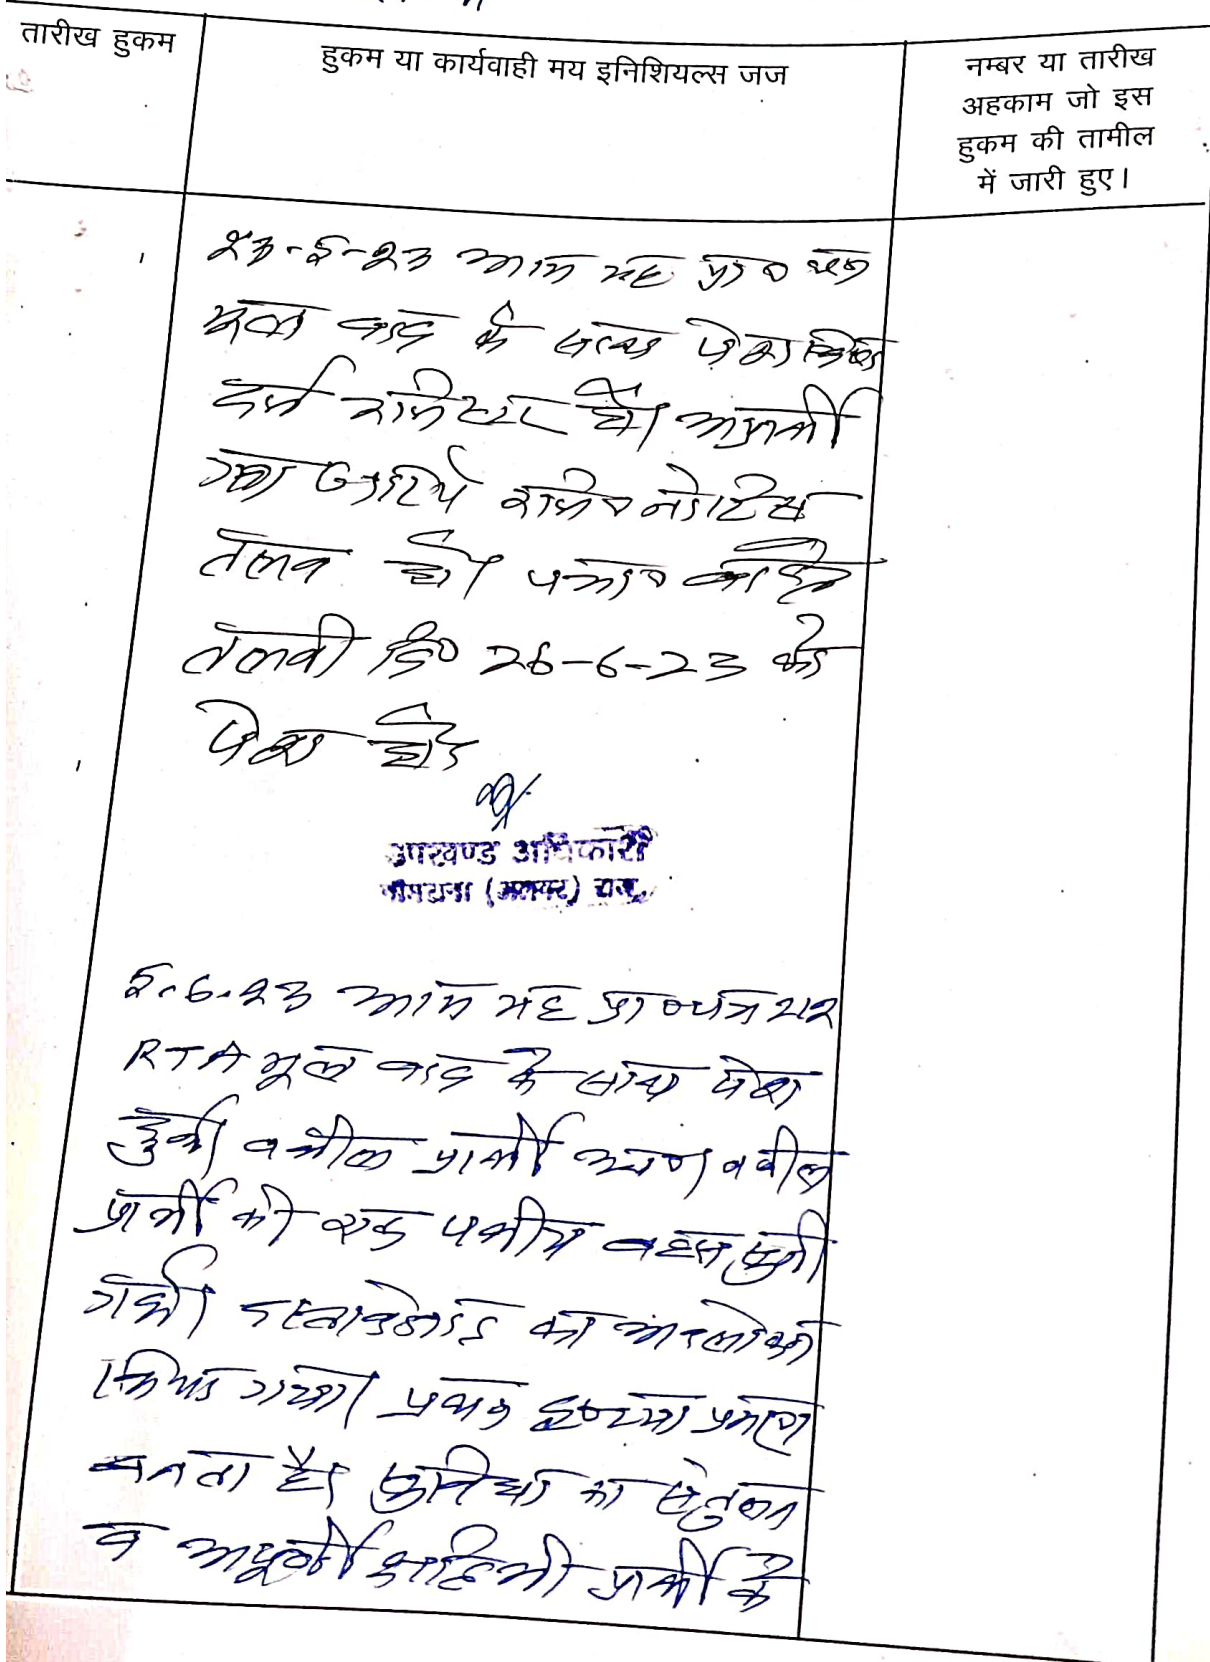 तारीख हुकम
हुकम या कार्यवाही मय इनिशियल्स जज
नम्बर या तारीख
अहकाम जो इस
हुकम की तामील
में जारी हुए।
२३-५-२३ आज यह प्रा० पत्र
मूल वाद के साथ पेश किया
दर्ज रजिस्टर हो। अप्रार्थी
गण जरिये रजि० नोटिस
तलब हो। पत्रा०
तलबी दि० 26-6-23 को
पेश हो
उपखण्ड अधिकारी
(अलवर) राज.
५.6.२३ आज यह प्रा० पत्र २१२
RTA मूल वाद के साथ पेश
हुआ। वकील प्रार्थी वकील
प्रार्थी की एक पक्षीय बहस सुनी
गयी। दस्तावेजात का अवलोकन
किया गया। प्रथम दृष्टया प्रकरण
बनता है। सुविधा का संतुलन
व अपूर्णीय क्षति भी प्रार्थी के